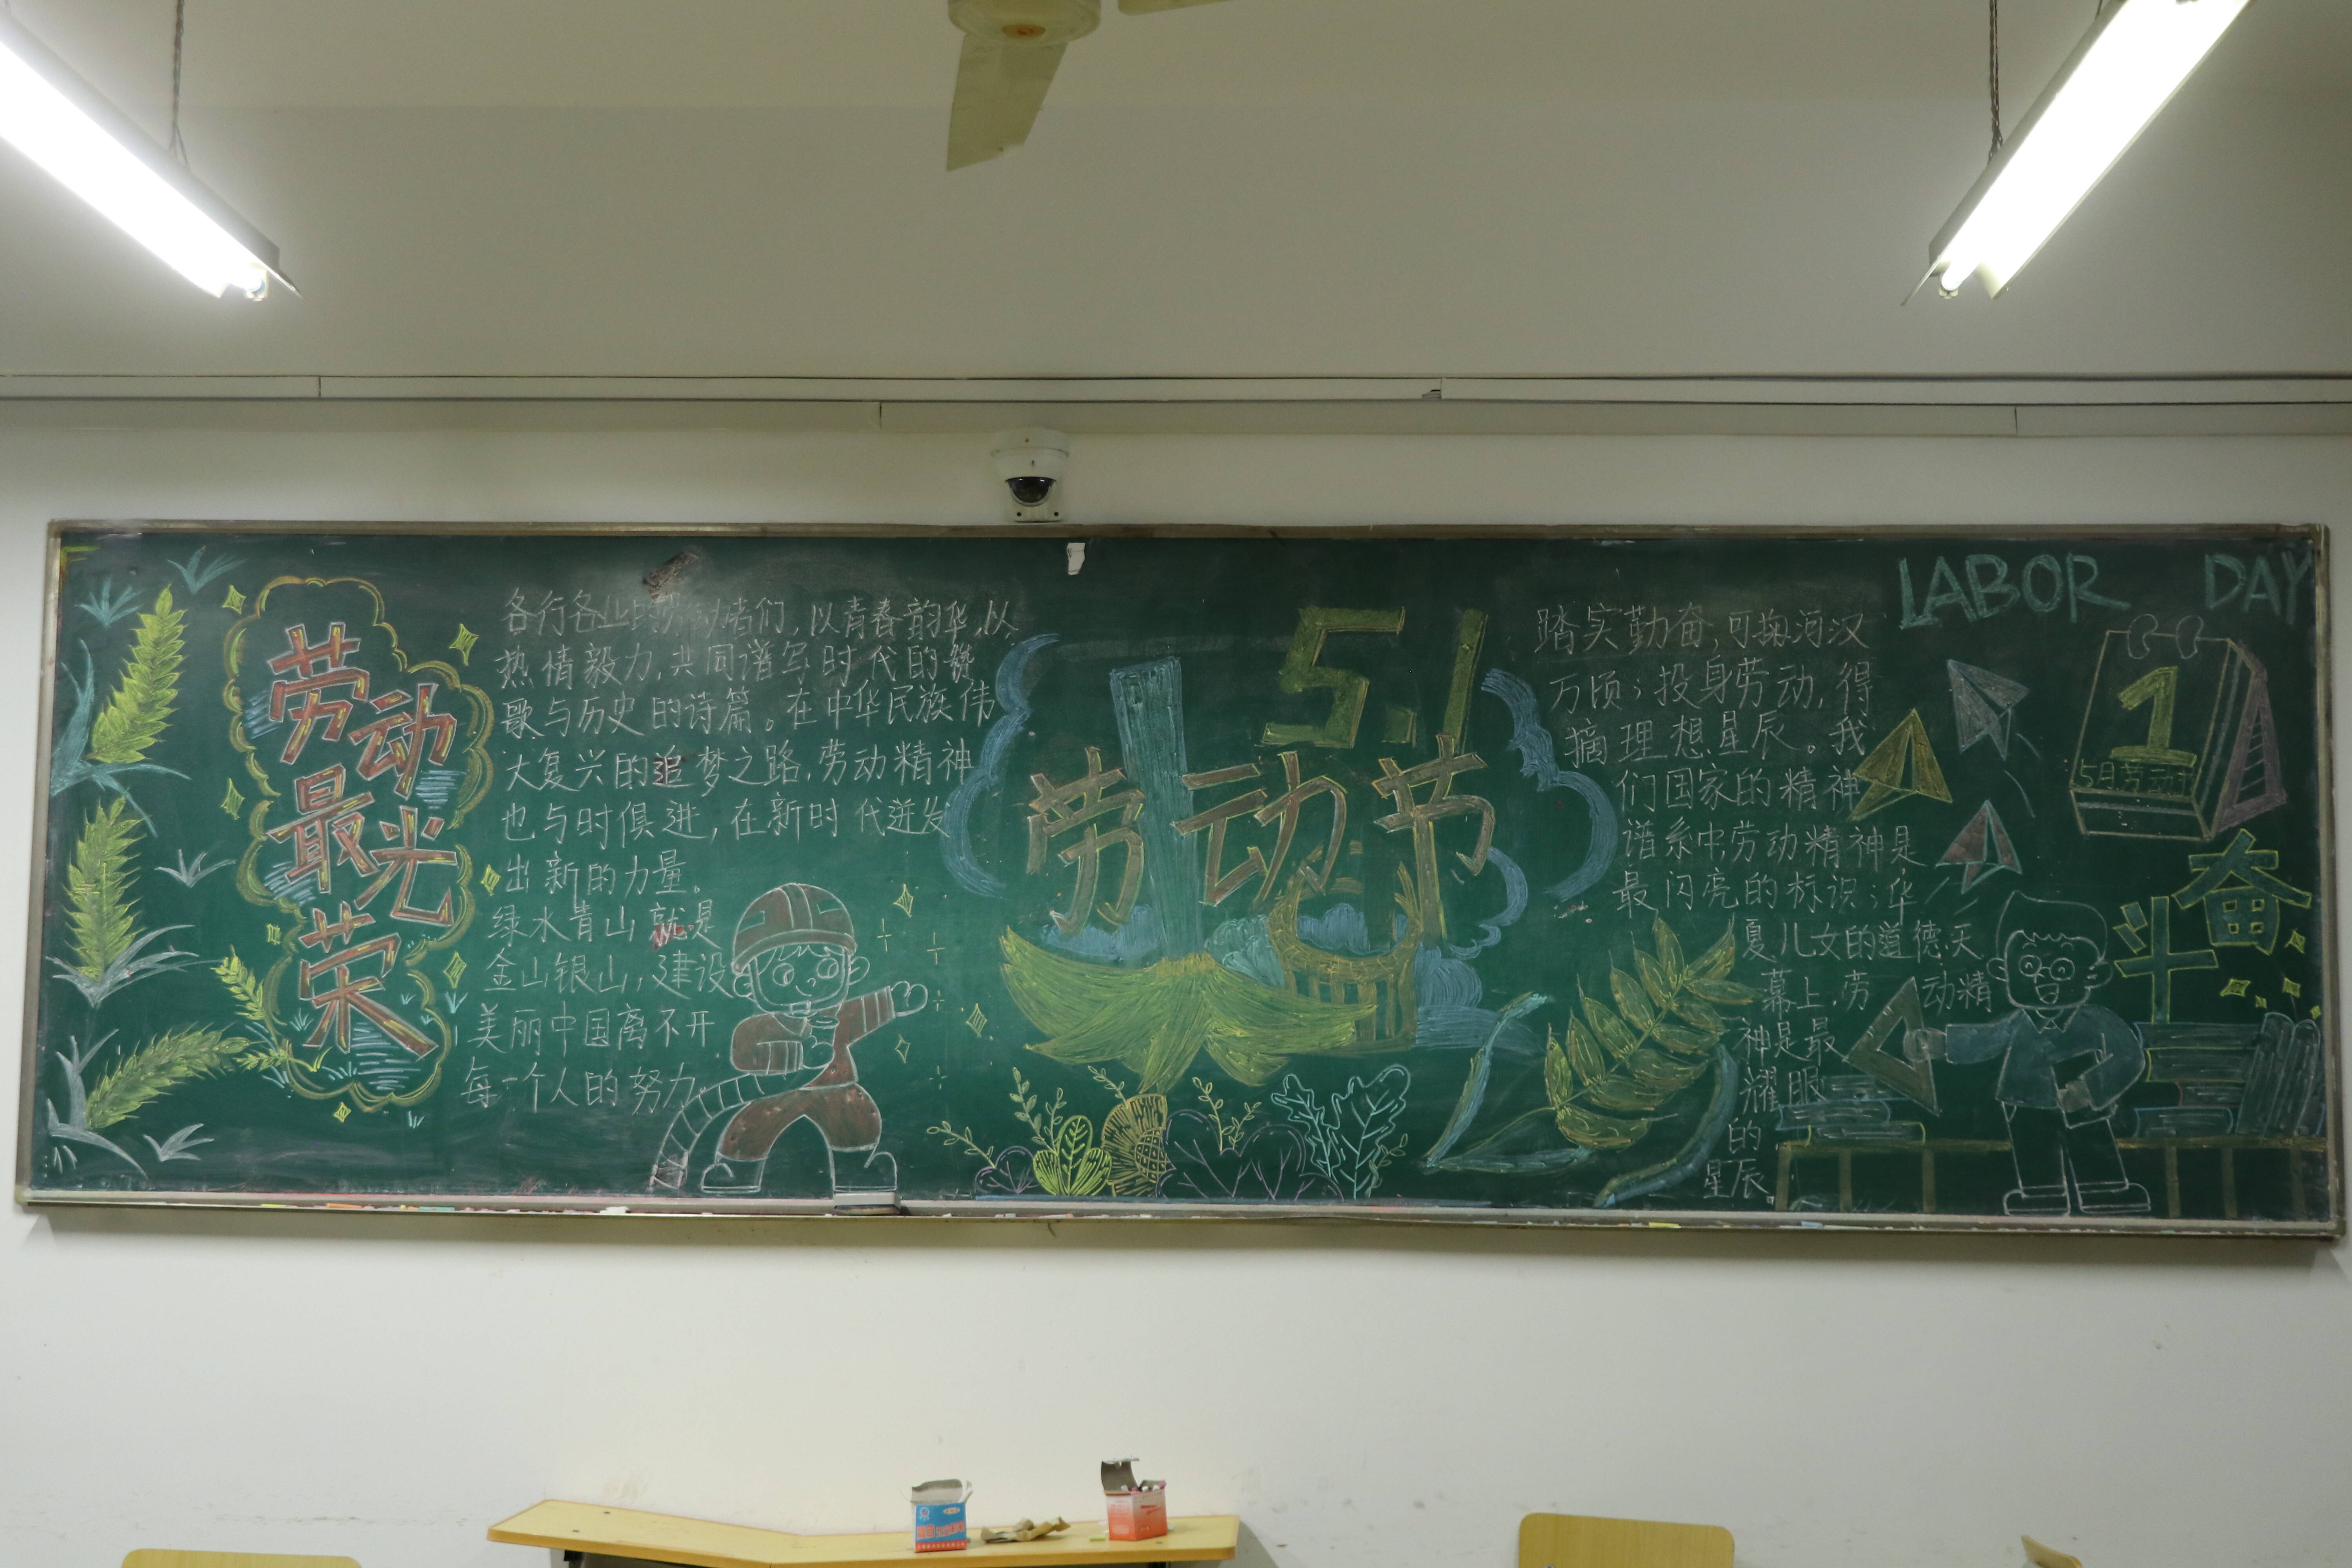 劳动
最光
荣
各行各业的劳动者们，以青春韵华，从
热情毅力，共同谱写时代的赞
歌与历史的诗篇。在中华民族伟
大复兴的追梦之路，劳动精神
也与时俱进，在新时代迸发
出新的力量。
绿水青山就是
金山银山，建设
美丽中国离不开
每一个人的努力。
5.1
劳动节
踏实勤奋，可掬河汉
万顷；投身劳动，得
摘理想星辰。我
们国家的精神
谱系中劳动精神是
最闪亮的标识；华
夏儿女的道德天
幕上，劳动精
神是最
耀眼
的
星辰。
LABOR DAY
1
5月劳动节
奋
斗